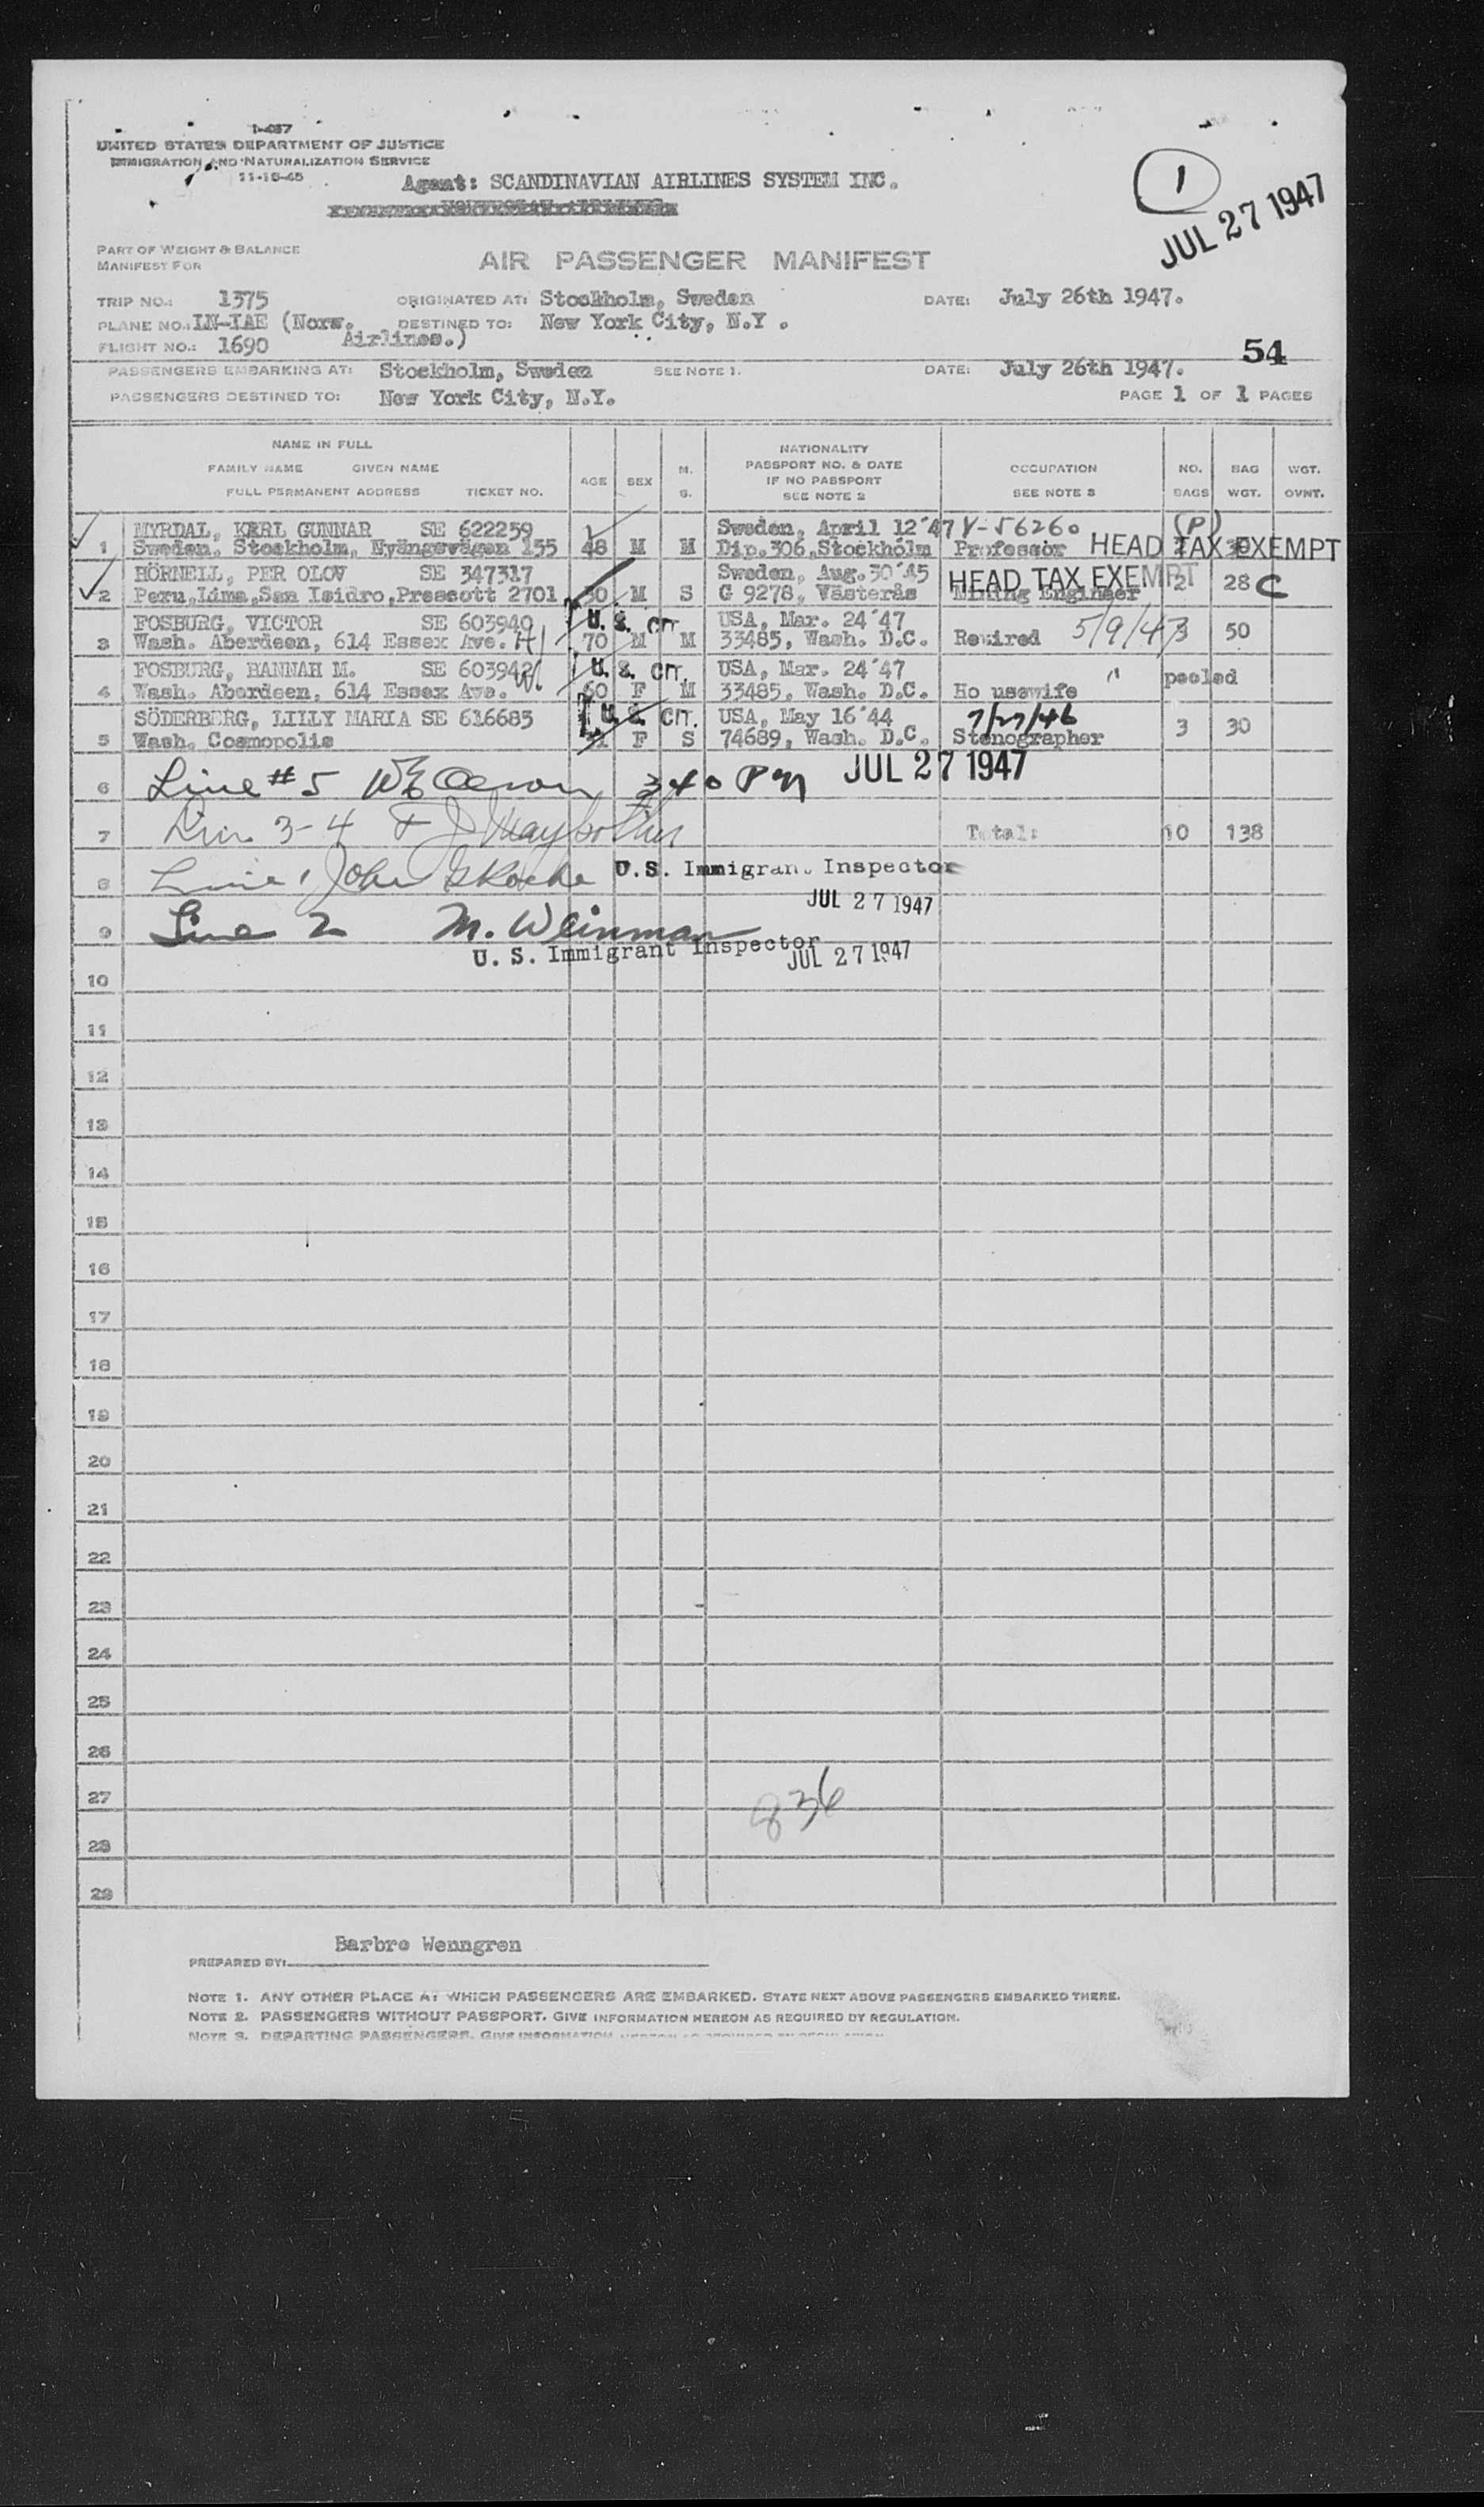 I-487
UNITED STATES DEPARTMENT OF JUSTICE
IMMIGRATION AND NATURALIZATION SERVICE
11-15-45
Agent: SCANDINAVIAN AIRLINES SYSTEM INC.
1
JUL 27 1947
PART OF WEIGHT & BALANCE
MANIFEST FOR
AIR PASSENGER MANIFEST
TRIP NO.: 1375 ORIGINATED AT: Stockholm, Sweden DATE: July 26th 1947.
PLANE NO.: LN-IAE (Norw. Airlines.) DESTINED TO: New York City, N.Y .
FLIGHT NO.: 1690
54
PASSENGERS EMBARKING AT: Stockholm, Sweden SEE NOTE 1. DATE: July 26th 1947.
PASSENGERS DESTINED TO: New York City, N.Y. PAGE 1 OF 1 PAGES
NAME IN FULL
FAMILY NAME GIVEN NAME
FULL PERMANENT ADDRESS TICKET NO.
AGE SEX M. S.
NATIONALITY
PASSPORT NO. & DATE
IF NO PASSPORT
SEE NOTE 2
OCCUPATION
SEE NOTE 3
NO. BAGS
BAG WGT.
WGT. OVNT.
MYRDAL, KARL GUNNAR SE 622259 Sweden, April 12´47 V-56260 (P)
1 Sweden, Stockholm, Nyängsvägen 155 48 M M Dip.306,Stockholm Professor HEAD TAX EXEMPT
HÖRNELL, PER OLOV SE 347317 Sweden, Aug.30´45 HEAD TAX EXEMPT
2 Peru,Lima,San Isidro,Prescott 2701 30 M S G 9278, Västerås Mining Engineer 2 28 C
FOSBURG, VICTOR SE 603940 U. S. CIT. USA, Mar. 24´47
3 Wash. Aberdeen, 614 Essex Ave. H 70 M M 33485, Wash. D.C. Retired 5/9/47 3 50
FOSBURG, HANNAH M. SE 603942 U. S. CIT. USA, Mar. 24´47 " pooled
4 Wash. Aberdeen, 614 Essex Ave. W. 60 F M 33485, Wash. D.C. Ho usewife
SÖDERBERG, LILLY MARIA SE 616685 U. S. CIT. USA, May 16´44 7/27/46
5 Wash. Cosmopolis F S 74689, Wash. D.C. Stenographer 3 30
6 Line #5 340 PM JUL 27 1947
7 Line 3-4 Total: 10 138
8 Line 1 John U.S. Immigrant Inspector
JUL 27 1947
9 Line 2 M. Weinman
U. S. Immigrant Inspector JUL 27 1947
10
11
12
13
14
15
16
17
18
19
20
21
22
23
24
25
26
27
836
28
29
PREPARED BY: Barbro Wenngren
NOTE 1. ANY OTHER PLACE AT WHICH PASSENGERS ARE EMBARKED. STATE NEXT ABOVE PASSENGERS EMBARKED THERE.
NOTE 2. PASSENGERS WITHOUT PASSPORT. GIVE INFORMATION HEREON AS REQUIRED BY REGULATION.
NOTE 3. DEPARTING PASSENGERS. GIVE INFORMATION HEREON AS REQUIRED BY REGULATION.